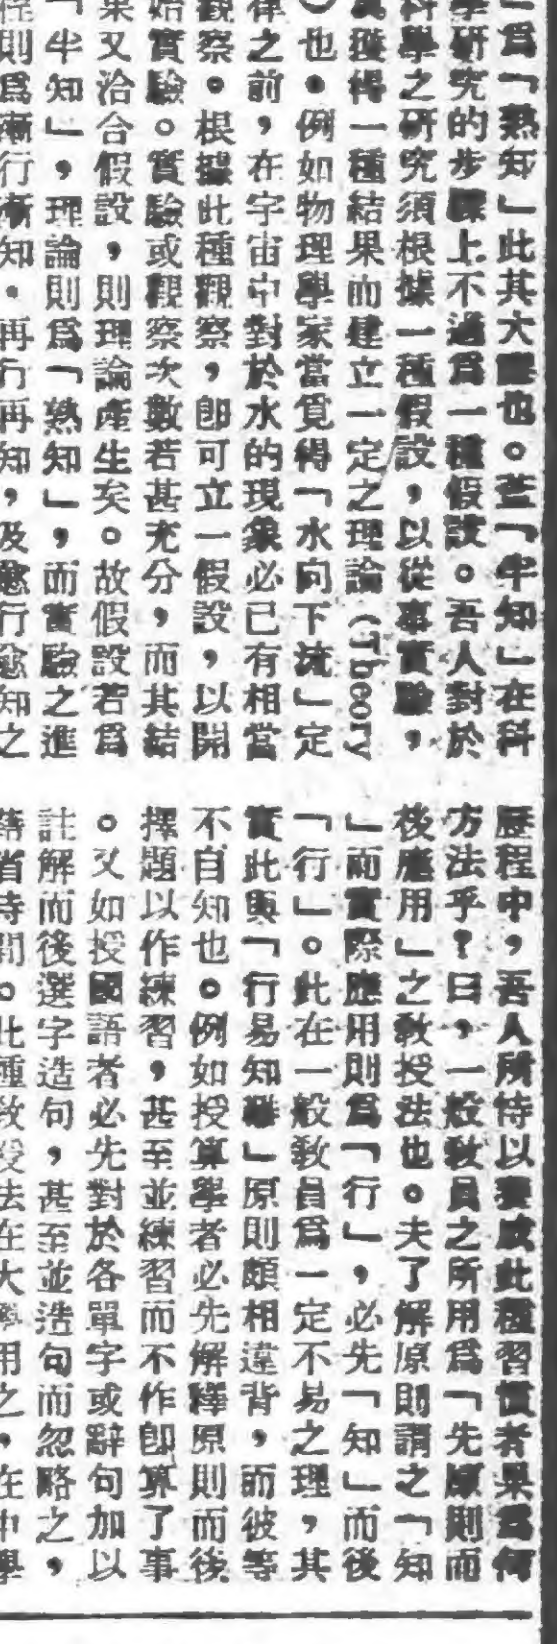 爲「熟知」此其大要也。苦「半知」在科
學研究的步驟上不過爲一種假設。吾人對於
科學之研究須根據一種假設，以從事實驗，
爲獲得一種結果而建立一定之理論（Theory
）也。例如物理學家當覓得「水向下流」定
律之前，在宇宙中對於水的現象必已有相當
觀察。根據此種觀察，卽可立一假設，以開
始實驗。實驗或觀察次數若甚充分，而其結
果又洽合假設，則理論產生矣。故假設若爲
「半知」，理論則爲「熟知」，而實驗之進
程則爲漸行漸知。再行再知，及愈行愈知之
歷程中，吾人所恃以養成此種習慣者果爲何
方法乎？曰，一般敎員之所用爲「先原則而
後應用」之敎授法也。夫了解原則謂之「知
」而實際應用則爲「行」，必先「知」而後
「行」。此在一般敎員爲一定不易之理，其
實此與「行易知難」原則頗相違背，而彼等
不自知也。例如授算學者必先解釋原則而後
擇題以作練習，甚至並練習而不作卽算了事
。又如授國語者必先對於各單字或辭句加以
註解而後選字造句，甚至並造句而忽略之，
省時間。此種敎授法在大學用之，在中學